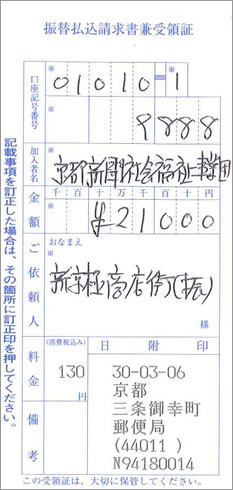 振替払込請求書兼受領証
口座記号番号
01010-1
9888
加入者名
京都新聞社会福祉事業団
金額
千 百 十 万 千 百 十 円
¥21000
ご依頼人
おなまえ
新京極商店街(振)
様
料金
(消費税込み)
130
円
備考
日附印
30-03-06
京都
三条御幸町
郵便局
(44011 )
N94180014
記載事項を訂正した場合は、その箇所に訂正印を押してください。
この受領証は、大切に保管してください。